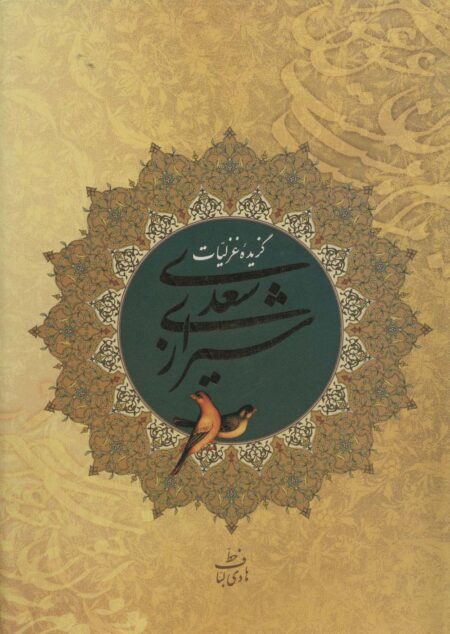 گزیدهٔ غزلیّات
سعدی
شیرازی
خط
هادی لباف